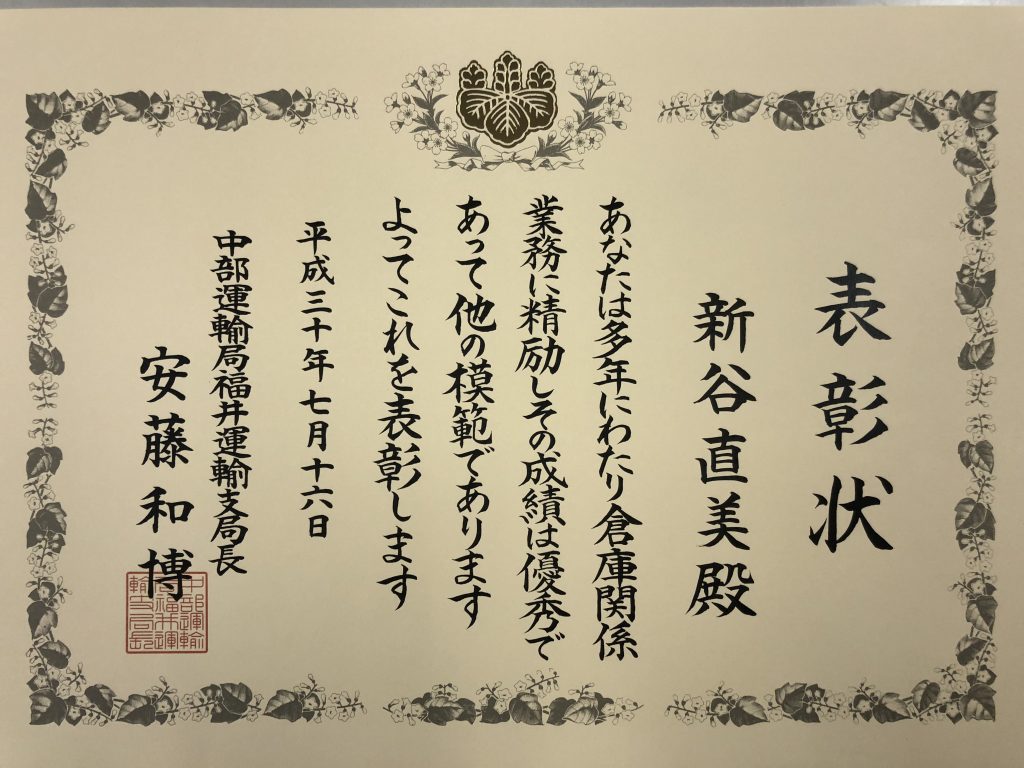 表彰状
新谷直美殿
あなたは多年にわたり倉庫関係
業務に精励しその成績は優秀で
あって他の模範であります
よってこれを表彰します
平成三十年七月十六日
中部運輸局福井運輸支局長
安藤和博
中部運輸
局福井運
輸支局長